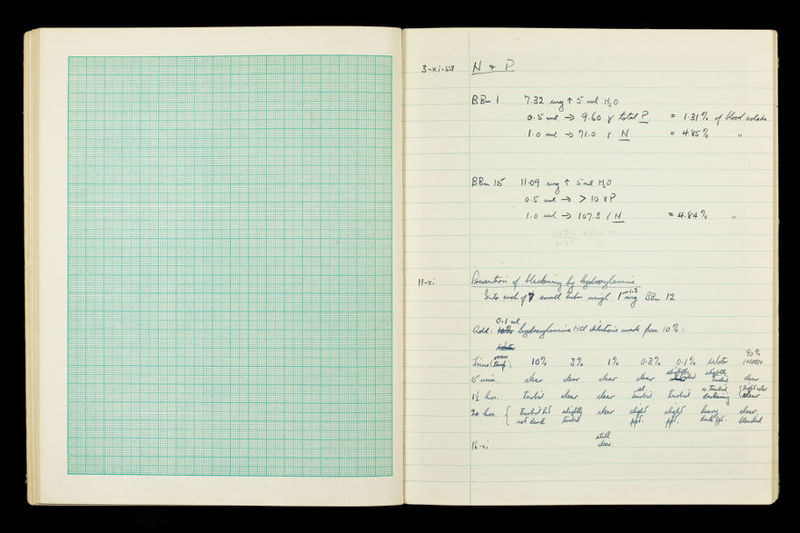 3-xi-53 N & P
BBm 1 7.32 mg ↑ 5 ml H2O
0.5 ml → 9.60 γ total P = 1.31% of blood solids
1.0 ml → 71.0 γ N = 4.85% "
BBm 15 11.09 mg ↑ 5 ml H2O
0.5 ml → > 10 γ P
1.0 ml → 107.3 γ N = 4.84% "
11-xi Prevention of blackening by hydroxylamine
Into each of 7 small tubes weigh 1-1.5 mg BBm 12
0.1 ml
Add: hydroxylamine HCl dilutions made from 10%:
Time (room temp.) 10% 3% 1% 0.3% 0.1% Water 90%
5 min. clear clear clear clear slightly turbid slightly turbid clear
1½ hrs. turbid clear clear sl. turbid turbid v. turbid darkening clear
20 hrs. { turbid but not dark slightly turbid clear slight ppt. slight ppt. heavy dark ppt. clear,
16-xi still clear.